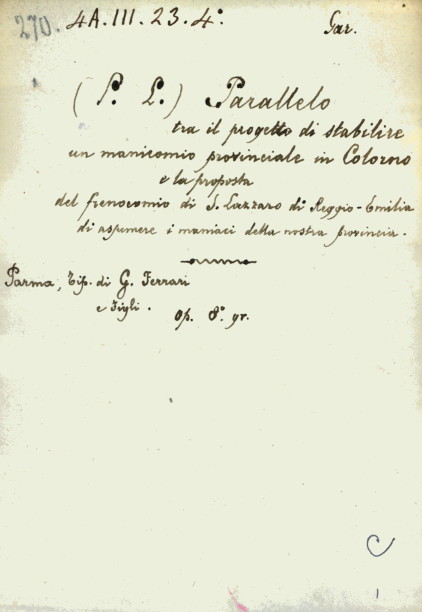 270. 4A.III.23.4°. Gar.
(P. L.) Parallelo
tra il progetto di stabilire
un manicomio provinciale in Colorno
e la proposta
del frenocomio di S. Lazzaro di Reggio-Emilia
di assumere i maniaci della nostra provincia.
Parma, Tip. di G. Ferrari
e Figli.
op. 8° gr.
C